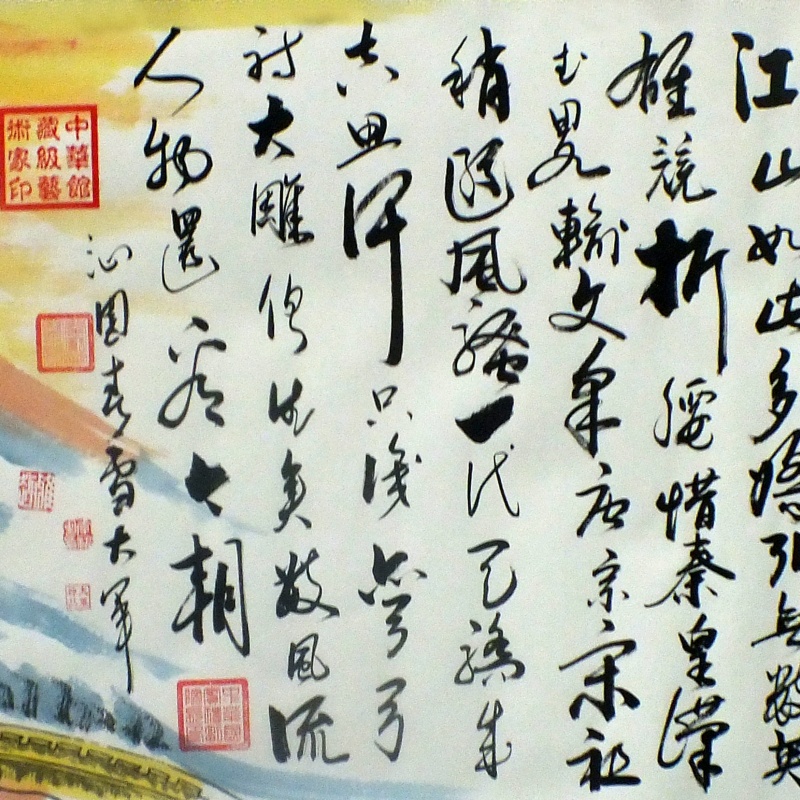 江山如此多嬌引無數英
雄競折腰惜秦皇漢
武畧輸文采唐宗宋祖
稍遜風騷一代天驕成
吉思汗只識弯弓
射大雕俱往矣數風流
人物還看今朝
沁園春雪大軍
中華館
藏級藝
術家印